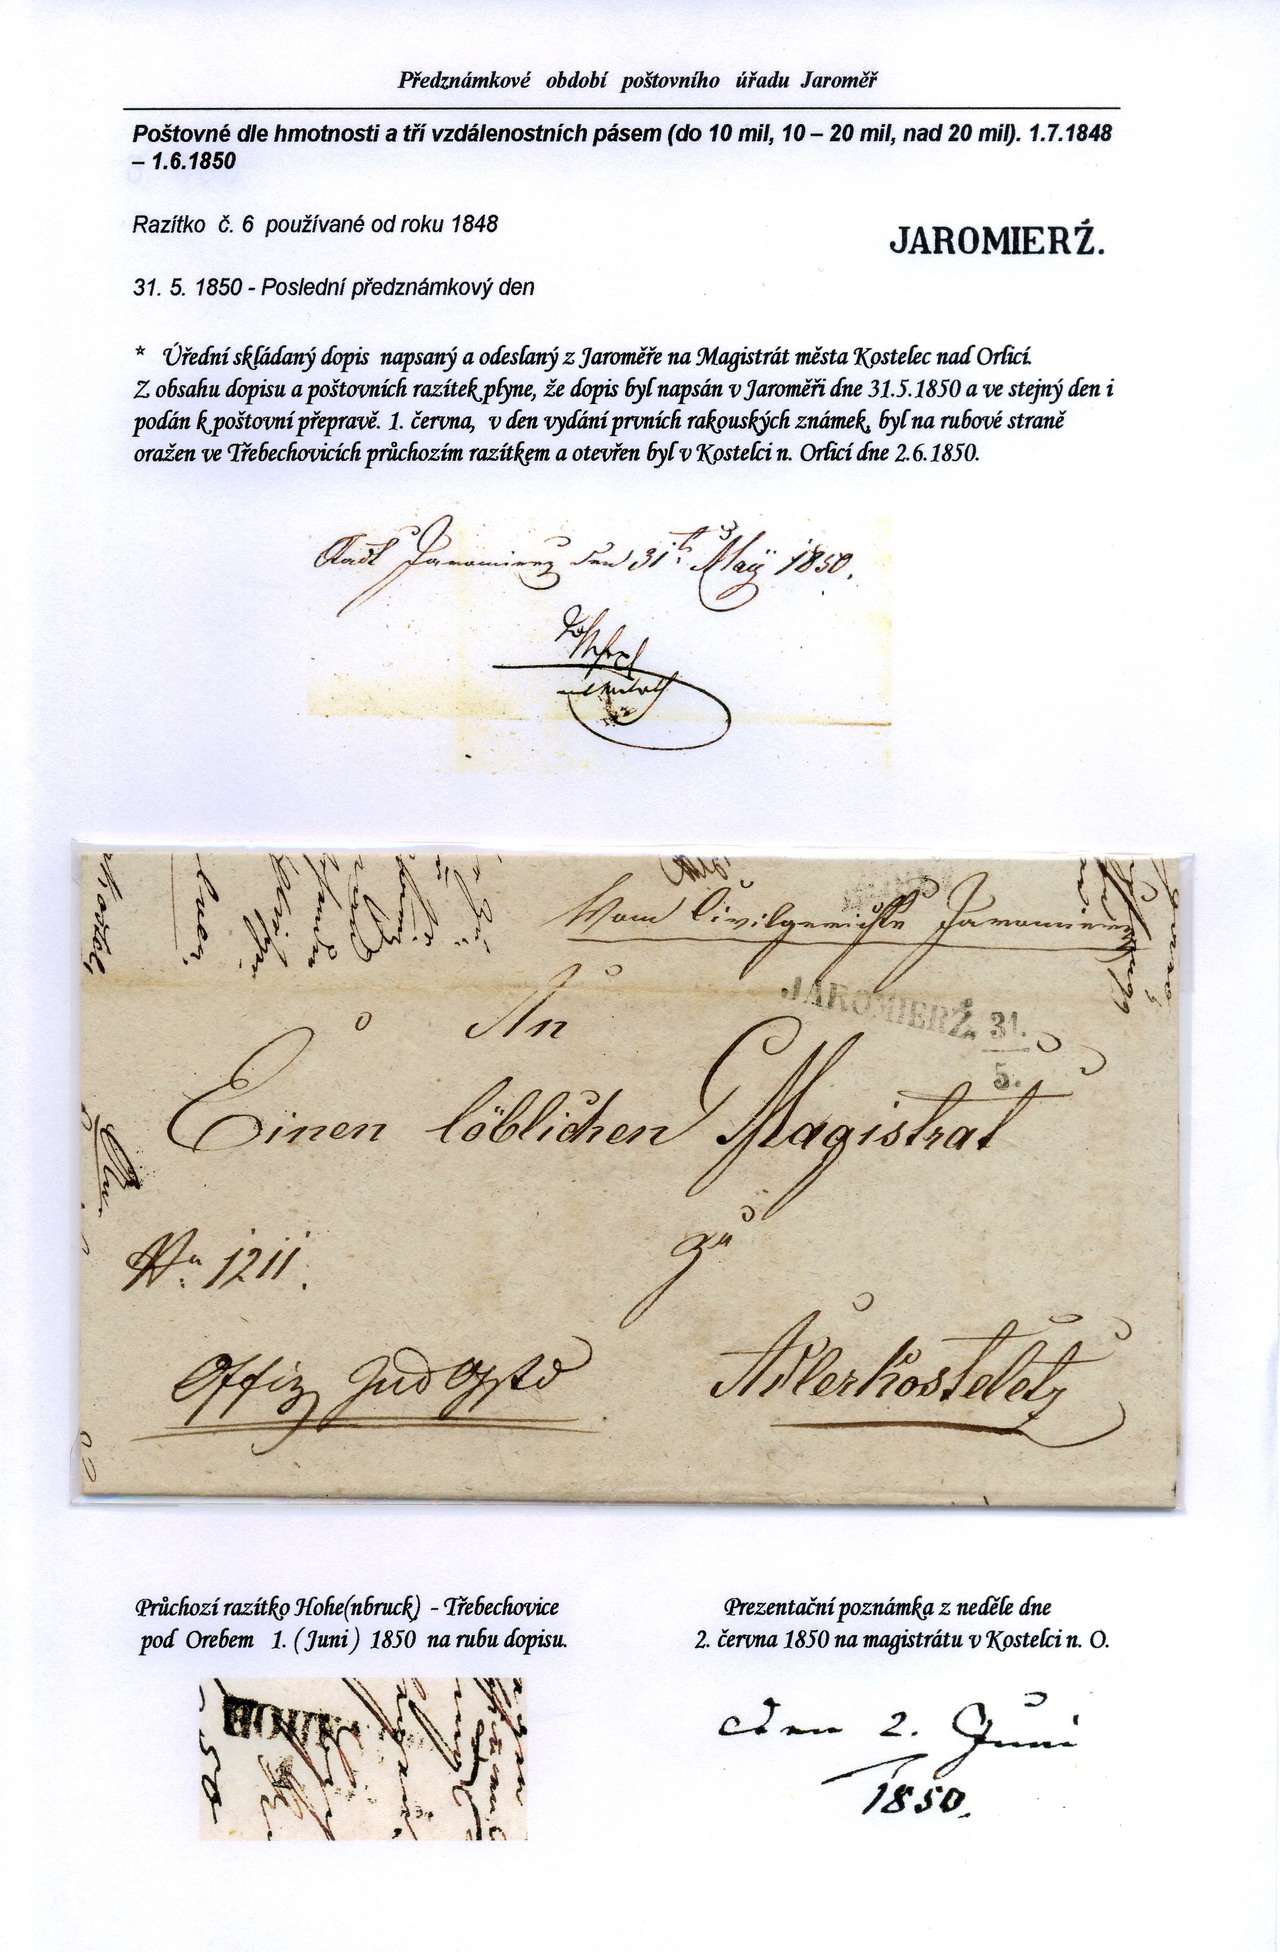 Předznámkové období poštovního úřadu Jaroměř
Poštovné dle hmotnosti a tří vzdálenostních pásem (do 10 mil, 10 – 20 mil, nad 20 mil). 1.7.1848
– 1.6.1850
Razítko č. 6 používané od roku 1848
JAROMIERŽ.
31. 5. 1850 - Poslední předznámkový den
* Úřední skládaný dopis napsaný a odeslaný z Jaroměře na Magistrát města Kostelec nad Orlicí.
Z obsahu dopisu a poštovních razítek plyne, že dopis byl napsán v Jaroměři dne 31.5.1850 a ve stejný den i
podán k poštovní přepravě. 1. června, v den vydání prvních rakouských známek, byl na rubové straně
oražen ve Třebechovicích průchozím razítkem a otevřen byl v Kostelci n. Orlicí dne 2.6.1850.
Stadt Jaromierz den 31t. Maÿ 1850.
Vom Civilgerichte Jaromierz
JAROMIERŽ. 31.
5.
An
Einen löblichen Magistrat
zu
1211.
Adlerkosteletz
Průchozí razítko Hohe(nbruck) - Třebechovice
pod Orebem 1. (Juni) 1850 na rubu dopisu.
Prezentační poznámka z neděle dne
2. června 1850 na magistrátu v Kostelci n. O.
HOHE
den 2. Juni
1850.